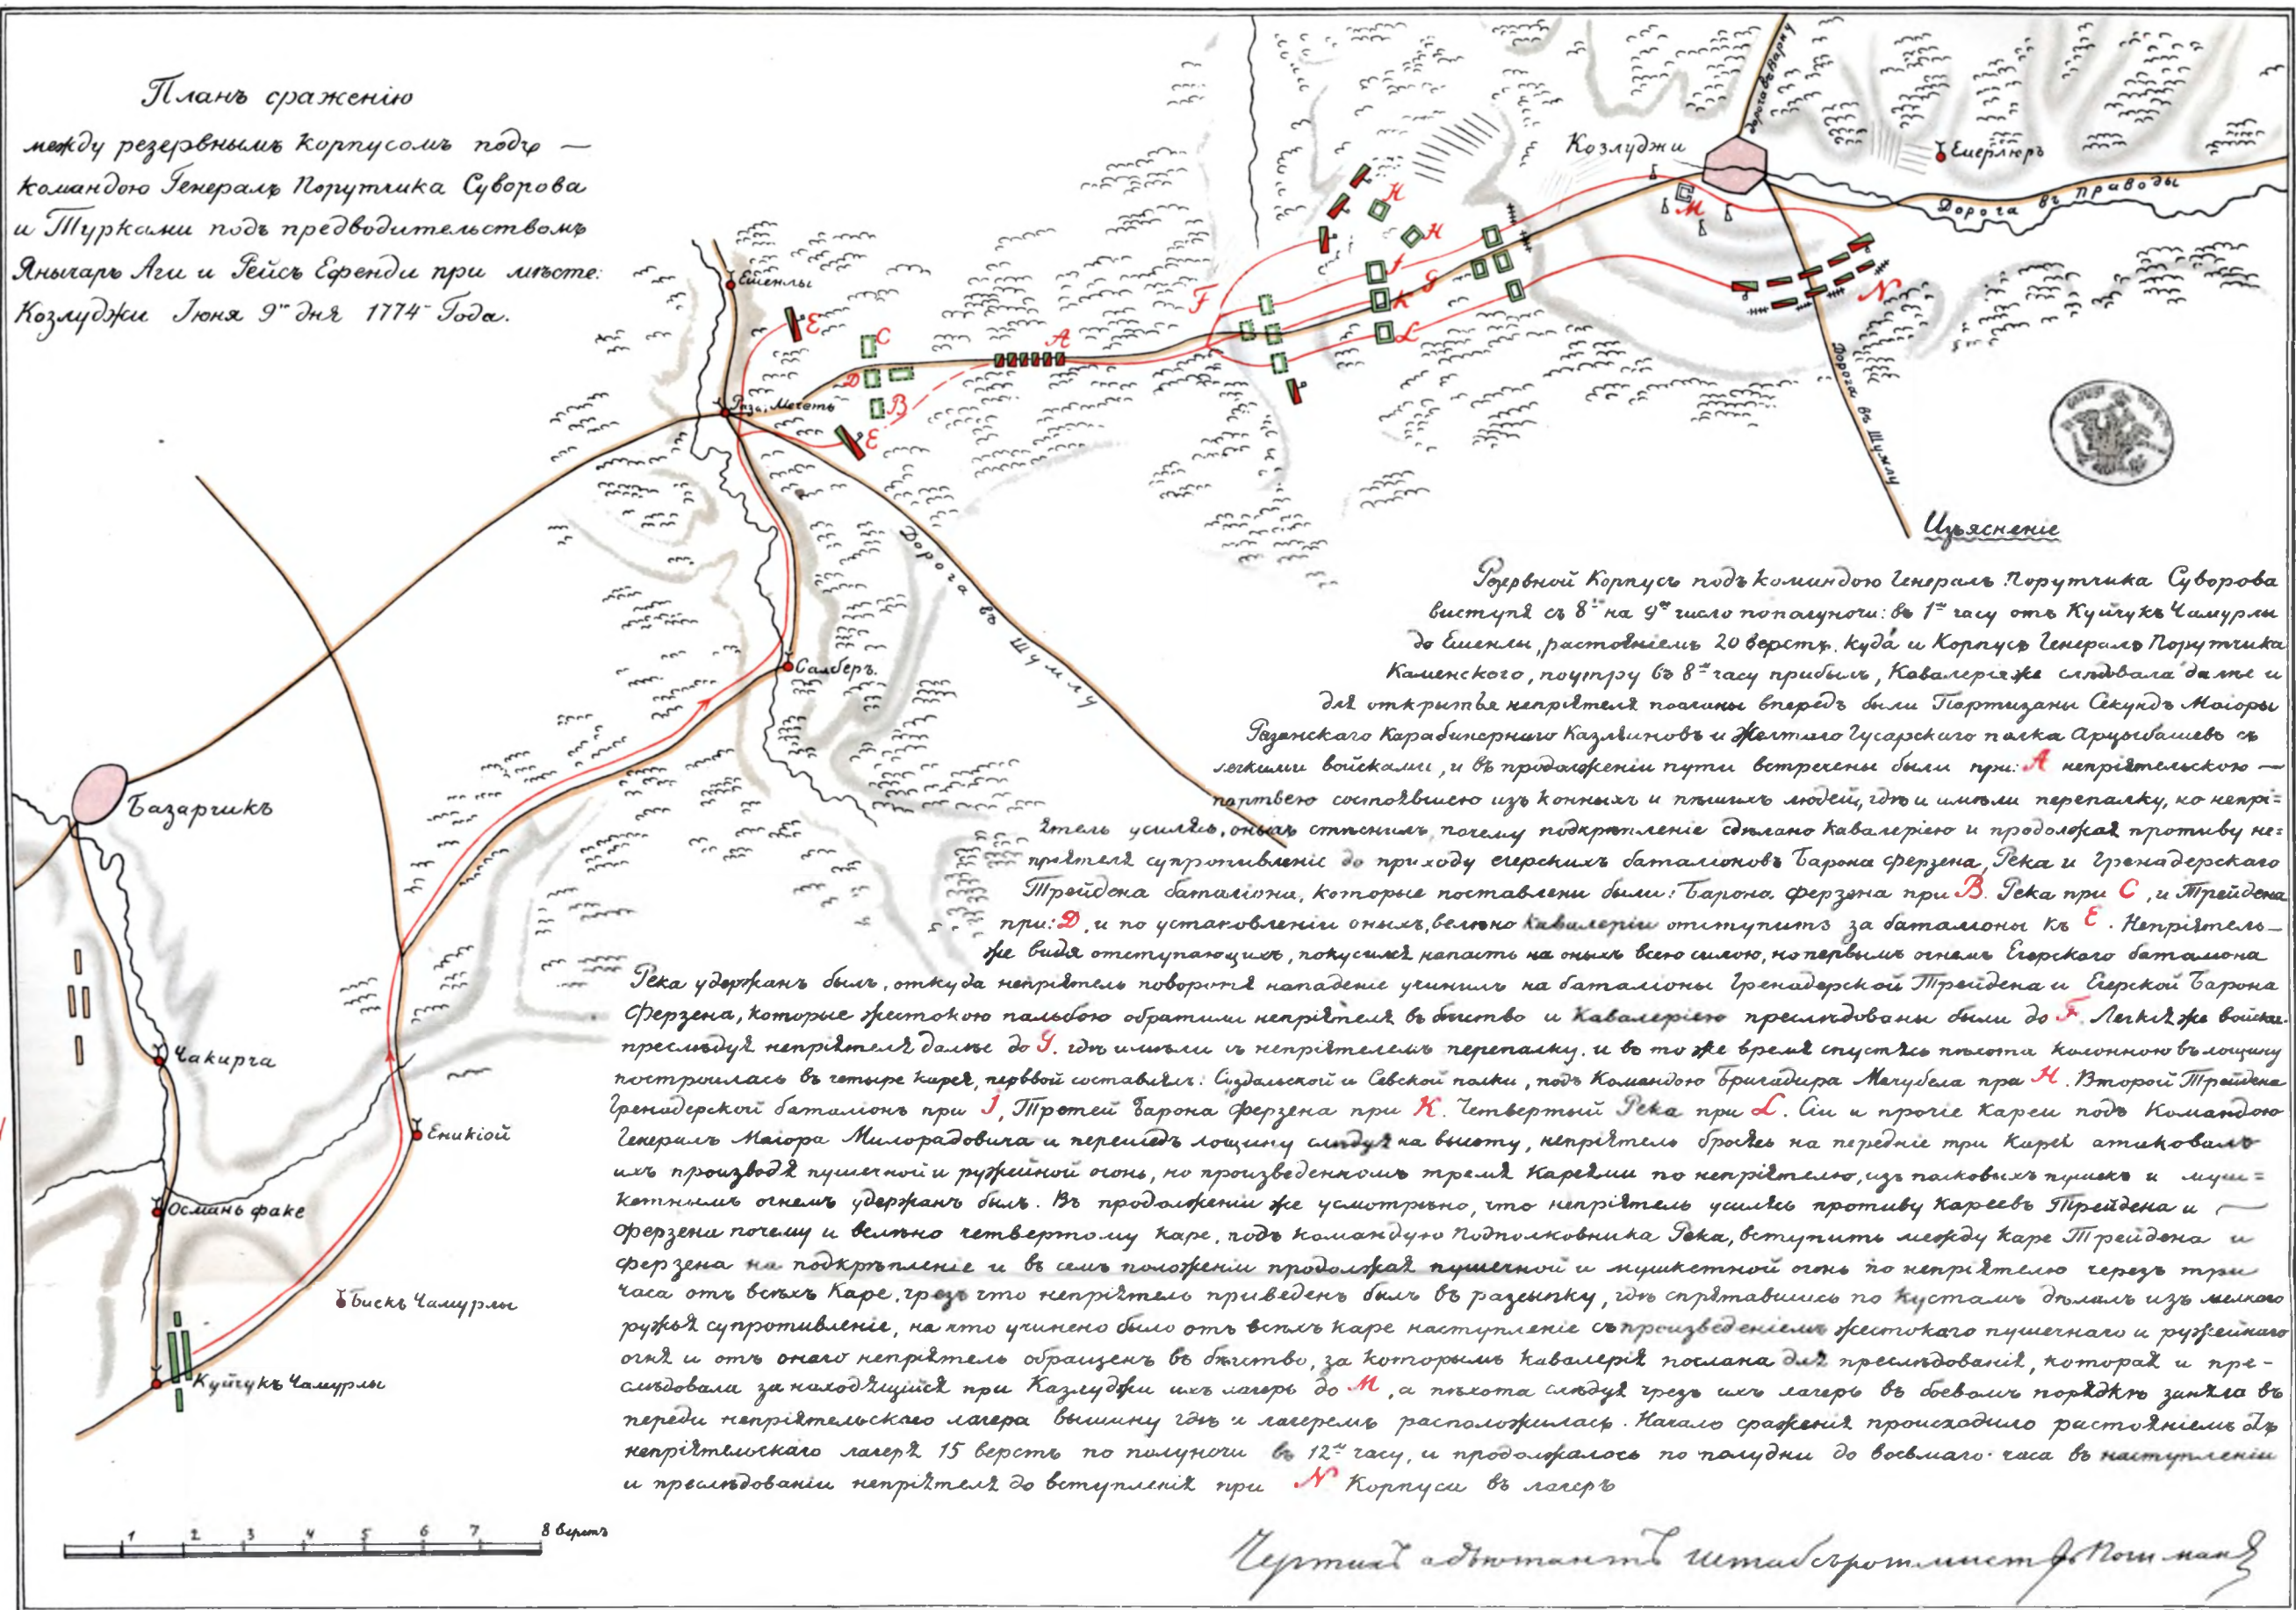 Планъ сраженію
между резервнымъ корпусомъ подъ —
командою Генералъ Порутчика Суворова
и Турками подъ предводительствомъ
Янычаръ Аги и Рейсъ Ефенди при мѣсте:
Козлуджи Іюня 9го дня 1774 Года.
дорога въ Варну
Козлуджи
Емерлюръ
Дорога въ праводы
Ешенлы
E
C
D
B
E
A
F
H
H
J
K
G
L
M
N
Мечеть
Дорога въ Шумлу
Дорога въ Шумлу
Салберъ.
Базарчикъ
Чакирча
Еникіой
Османъ факе
Бискъ Чамурлы
Куйчукъ Чамурлы
Изъясненіе
Резервной Корпусъ подъ командою Генералъ Порутчика Суворова
виступя съ 8го на 9е число пополуночи: въ 1м часу отъ Куйчукъ Чамурлы
до Ешенлы, растояніемъ 20 верстъ, куда и Корпусъ Генералъ Порутчика
Каменского, поутру въ 8м часу прибылъ, Кавалерія же следовала далее и
для открытья непріятеля посланы впередъ были Партизаны Секундъ Маіоры
Разанскаго Карабинернаго Казляиновъ и Желтаго Гусарскаго полка Арцыбашевъ съ
легкими войсками, и въ продолженіи пути встречены были при: A непріятельскою —
партіею состоявшею изъ конныхъ и пѣшихъ людей, гдѣ и имѣли перепалку, но непрі=
ятель усилясь, оныхъ стѣснилъ, почему подкрѣпленіе сдѣлано кавалеріею и продолжая противу не=
пріятеля супротивленіе до приходу егерскихъ баталіоновъ Барона Ферзена, Река и Гренадерскаго
Трейдена баталіона, которые поставлени были: Барона Ферзена при B. Река при C, и Трейдена
при: D, и по установленіи оныхъ, велѣно кавалеріи отступить за баталіоны къ E. Непріятель—
же видя отступающихъ, покусился напасть на оныхъ всею силою, но первымъ огнемъ Егерскаго баталіона
Река удержанъ былъ, откуда непріятель поворотя нападеніе учинилъ на баталіоны Гренадерской Трейдена и Егерской Барона
Ферзена, которые жестокою пальбою обратили непріятеля въ бѣгство и Кавалеріею преслѣдованы были до F. Легкія же войска
преслѣдуя непріятеля далѣе до G. гдѣ имѣли съ непріятелемъ перепалку. и въ то же время спустясь пѣхота колонною въ лощину
построилась въ четыре карея, перввой составлялъ: Суздальской и Севской полки, подъ Командою Бригадира Мачубела при H. Второй Трейдена
Гренадерской баталіонъ при J, Третей Барона Ферзена при K. Четвертый Река при L. Сіи и прочіе кареи подъ Командою
Генералъ Маіора Милорадовича и перешедъ лощину следуя на высоту, непріятель бросясь на передніе три карея атаковалъ
ихъ производя пушечной и ружейной огонь, но произведенномъ тремя кареями по непріятелю, изъ полковыхъ пушекъ и муш=
кетнымъ огнемъ удержанъ былъ. Въ продолженіи же усмотрѣно, что непріятель усилясь противу кареевъ Трейдена и
Ферзена почему и велѣно четвертому каре, подъ командую Подполковника Река, вступить между каре Трейдена и
Ферзена на подкрѣпленіе и въ семъ положеніи продолжая пушечной и мушкетной огонь по непріятелю черезъ три
часа отъ всѣхъ каре, чрезъ что непріятель приведенъ былъ въ разсыпку, гдѣ спрятавшись по кустамъ дѣлалъ изъ мелкаго
ружья супротивленіе, на что учинено было отъ всѣхъ каре наступленіе съ произведеніемъ жестокаго пушечнаго и ружейнаго
огня и отъ онаго непріятель обращенъ въ бѣгство, за которымъ кавалерія послана для преслѣдованія, которая и пре-
слѣдовала за находящійся при Казлуджи ихъ лагерь до M, а пѣхота слѣдуя чрезъ ихъ лагерь въ боевомъ порядкѣ заняла въ
переди непріятельскаго лагера вышину гдѣ и лагеремъ расположилась. Начало сраженія происходило растояніемъ отъ
непріятельскаго лагеря 15 верстъ по полуночи въ 12м часу, и продолжалось по полудни до восьмаго часа въ наступленіи
и преслѣдованіи непріятеля до вступленія при N Корпуса въ лагеръ
1 2 3 4 5 6 7 8 верстъ
Чертилъ адъютантъ штабсъротмистръ